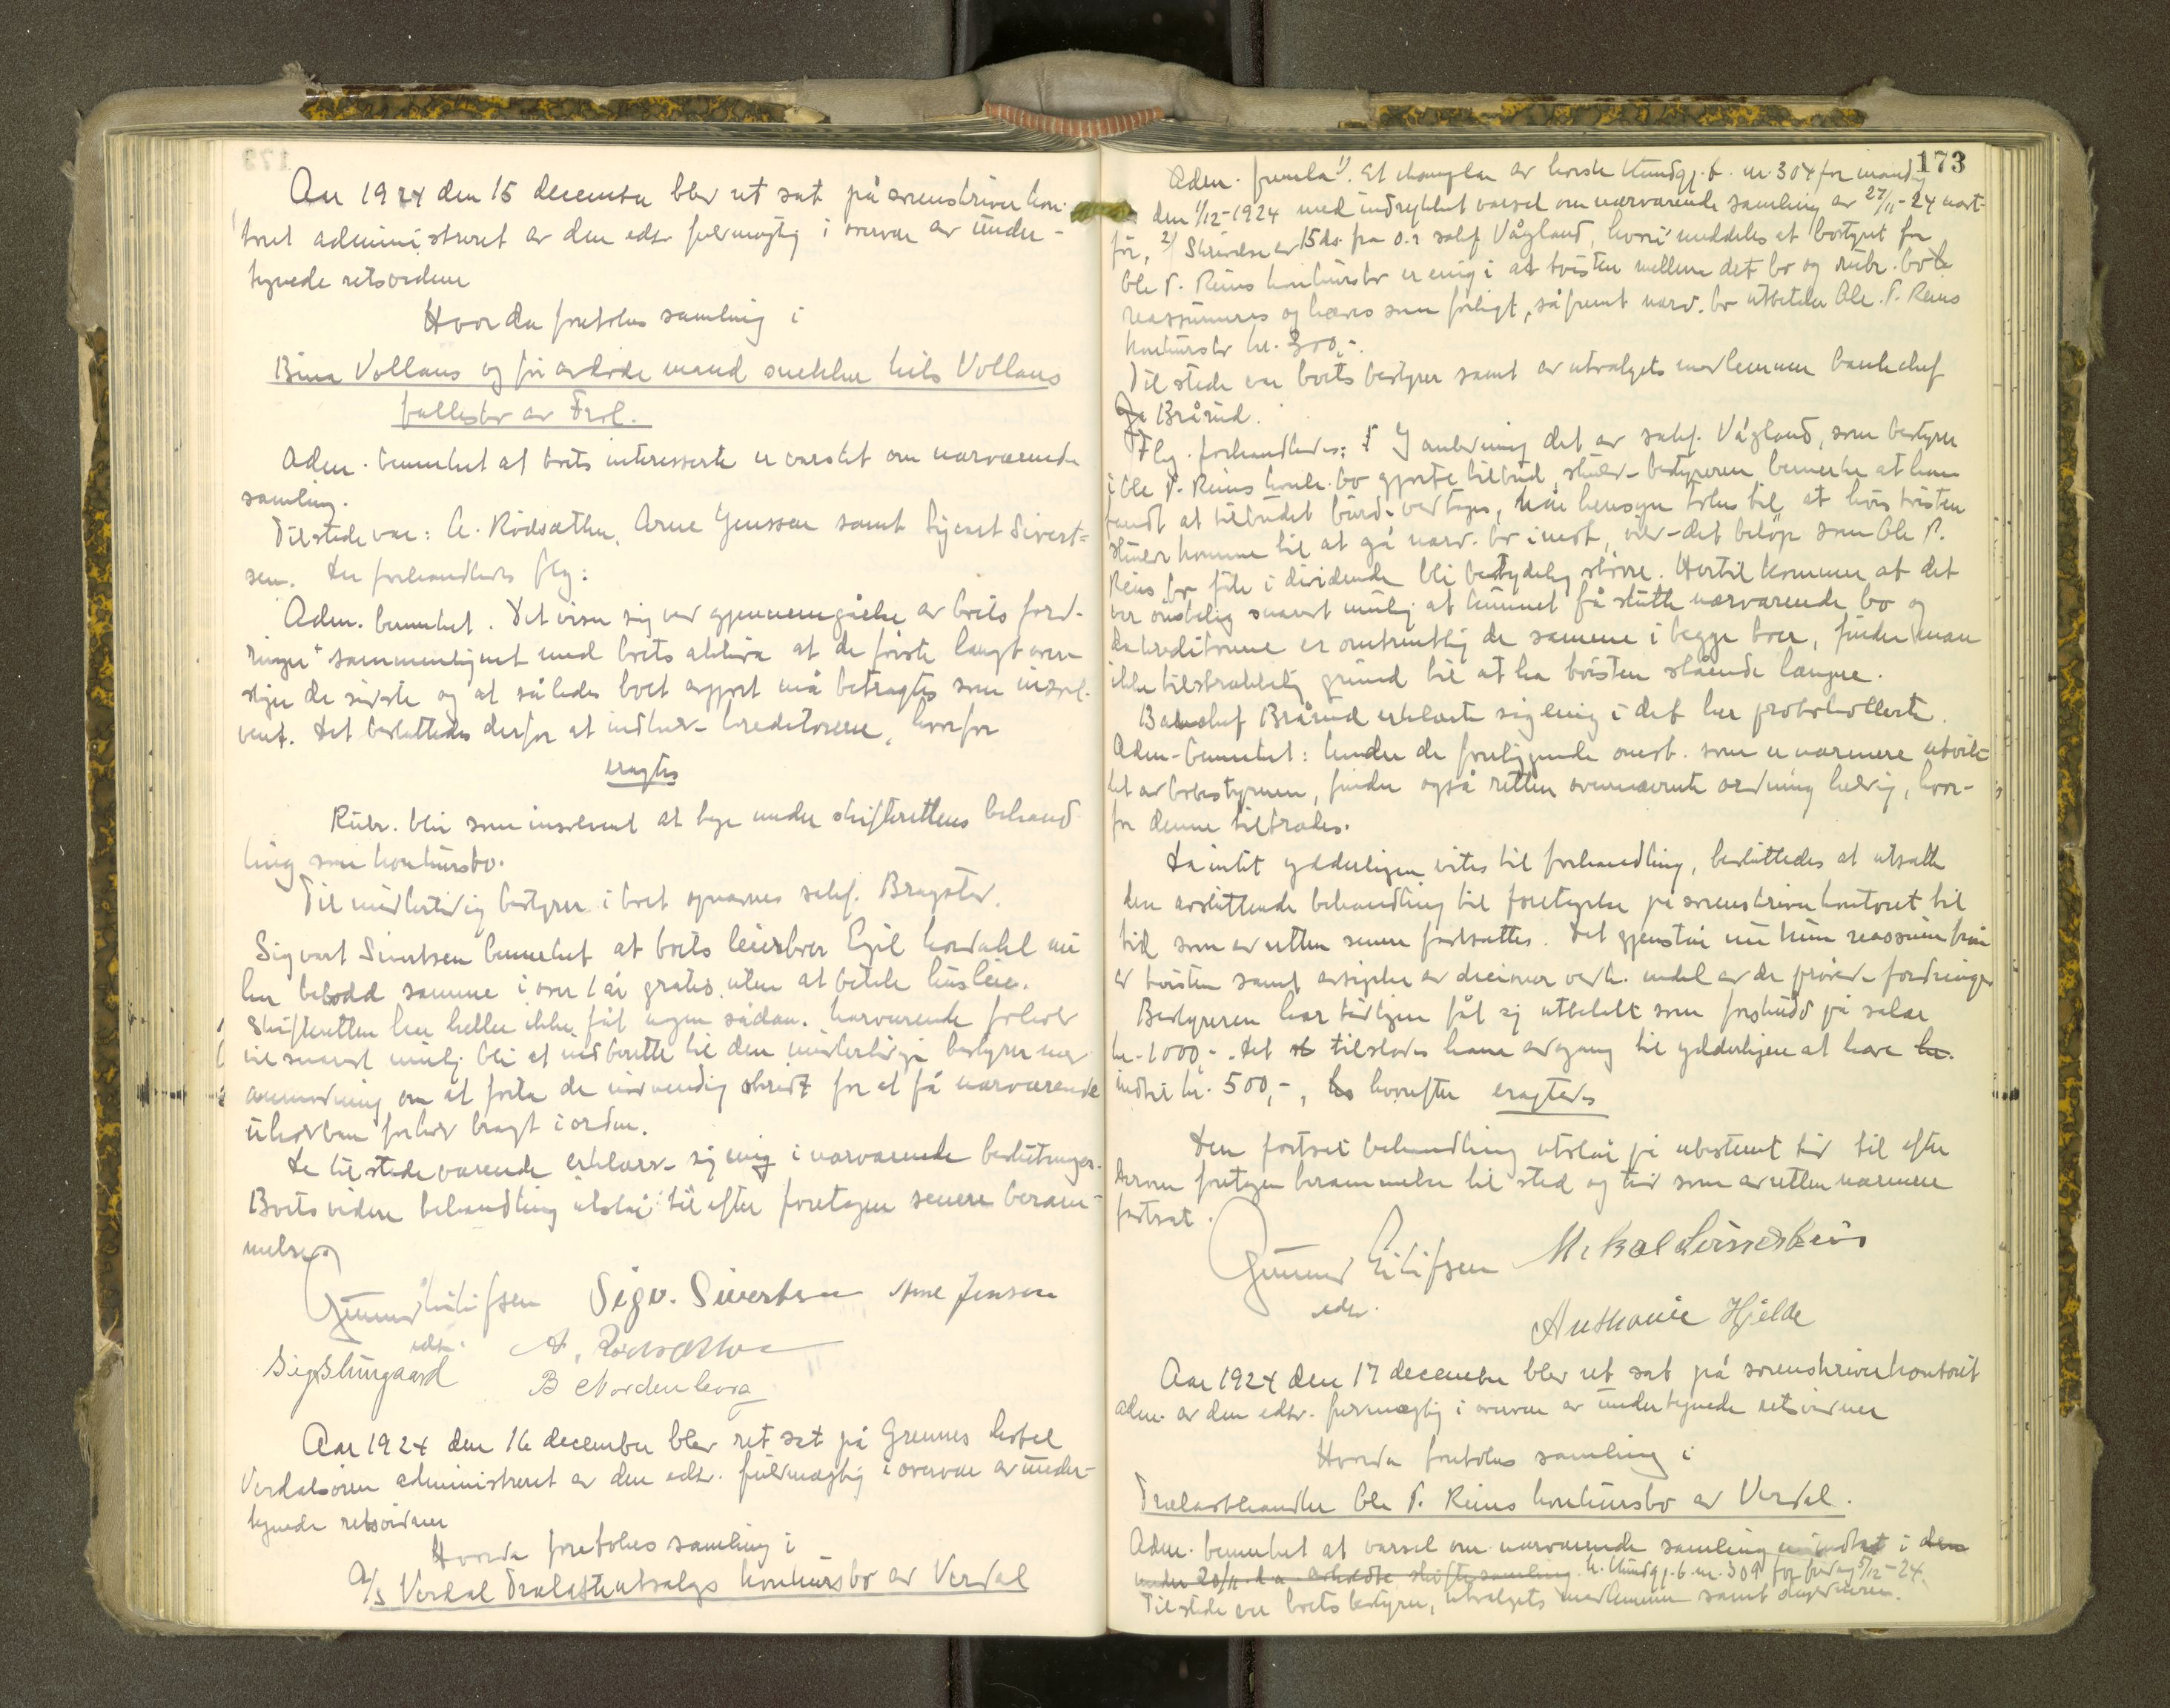 Aar 1924 den 15 december blev ret sat på sorenskriverkon-
toret administreret av den edsv. fuldmægtig i overvær av under-
tegnede retsvidner
Hvorda foretokes samling i
Bina Vollans og før avdøde mand snekker Nils Vollans
fællesbo av Frol.
Adm. bemerket at boets interesserte er varslet om nærværende
samling.
Tilstede var: A. Rodsæther, Arne Jenssen samt Sigvart Sivert-
sen. Der forhandledes flg:
Adm. bemerket. Det viser sig ved gjennemgåelse av boets ford-
ringer sammenlignet med boets aktiva at de første langt over-
stiger de sidste og at således boet avgjort må betragtes som insol-
vent. Det besluttedes derfor at indkalde kreditorene, hvorfor
eragtes
Rubr. blir som insolvent at tage under skifterettens behand-
ling som konkursbo.
Til midlertidig bestyrer i boet opnævnes sakf. Bragstad.
Sigvart Sivertsen bemerket at boets leieboer Egil Nordahl nu
har bebodd samme i over 1 år gratis uten at betale husleie.
Skifteretten har heller ikke fåt nogen sådan. Nærværende forhold
vil snarest mulig bli at indberette til den midlertidige bestyrer med
anmodning om at foreta de nødvendig skridt for at få nærværende
uholdbare forhold bragt i orden.
De tilstedeværende erklærte sig enig i nærværende beslutninger.
Boets videre behandling utstår til efter foretagen senere beram-
melse.
Gunnar Eilifsen Sigv. Sivertsen Arne Jenssen
edsv. A. Rodsæther
Sig. Skurgaard B Nordenborg
Aar 1924 den 16 december blev ret sat på Grennes hotel
Verdalsøren administreret av den edsv. fuldmægtig i overvær av under-
tegnede retsvidner
Hvorda foretokes samling i
A/S Verdal Trælastutsalgs konkursbo av Verdal
173
Adm. fremla 1). Et eksemplar av Norsk Kundgj.t. nr. 304 for mandag
den 1/12-1924 med indrykket varsel om nærværende samling av 27/11-24 næst-
før, 2) Skrivelse av 15 ds. fra o.r. sakf. Vågland, hvori meddeles at bostyret for
Ole P. Reins konkursbo er enig i at tvisten mellem det bo og rubr. bo
reassumeres og hæves som forligt, såfremt nærv. bo utbetaler Ole P. Reins
konkursbo kr. 300,-.
Tilstede var boets bestyrer samt av utvalgets medlemmer bankchef
Brårud.
Flg. forhandledes: I anledning det av sakf. Vågland, som bestyrer
i Ole P. Reins konk. bo gjorte tilbud, skulde bestyreren bemerke at han
fandt at tilbudet burde vedtages, når hensyn toges til, at hvis tvisten
skulde komme til at gå nærv. bo imot, vilde det beløp som Ole P.
Reins bo fik i dividende bli betydelig større. Hertil kommer at det
var ønskelig snarest mulig at kunnet få slutte nærværende bo og
da kreditorene er omtrentlig de samme i begge boer, finder man
ikke tilstrækkelig grund til at ha tvisten stående længre.
Bankchef Brårud erklærte sig enig i det her protokollerte.
Adm. bemerket: Under de foreliggende omst. som er nærmere utvik-
let av bobestyreren, finder også retten ovennævnte ordning heldig, hvor-
for denne tiltrædes.
Da intet ydderligere vites til forhandling, besluttedes at utsætte
den avsluttende behandling til foretagelse på sorenskriverkontoret til
tid som av retten senere fastsættes. Det gjenstår nu kun reassumtion
av tvisten samt avsigelse av decisioner vedk. endel av de prøvede fordringer
Bestyreren har tidligere fåt sig utbetalt som forskudd på salær
kr. 1000,-. Det tilstodes ham adgang til ydderligere at hæve
indtil kr. 500,-, hvorefter eragtedes
Den fortsat behandling utstår på ubestemt tid til efter
derom foretagen berammelse til sted og tid som av retten nærmere
fastsat.
Gunnar Eilifsen Mikal Leirset
edsv.
Anthonie Hjelde
Aar 1924 den 17 december blev ret sat på sorenskriverkontoret
adm. av den edsv. fuldmægtig i overvær av undertegnede retsvidner
Hvorda foretokes samling i
Trælasthandler Ole P. Reins konkursbo av Verdal.
Adm. bemerket at varsel om nærværende samling er indtat i den
under 20/11 d.a. avholdte skiftesamling. N. Kundgj.t. nr. 309 for fredag 5/12-24.
Tilstede var boets bestyrer, utvalgets medlemmer samt skyldneren.